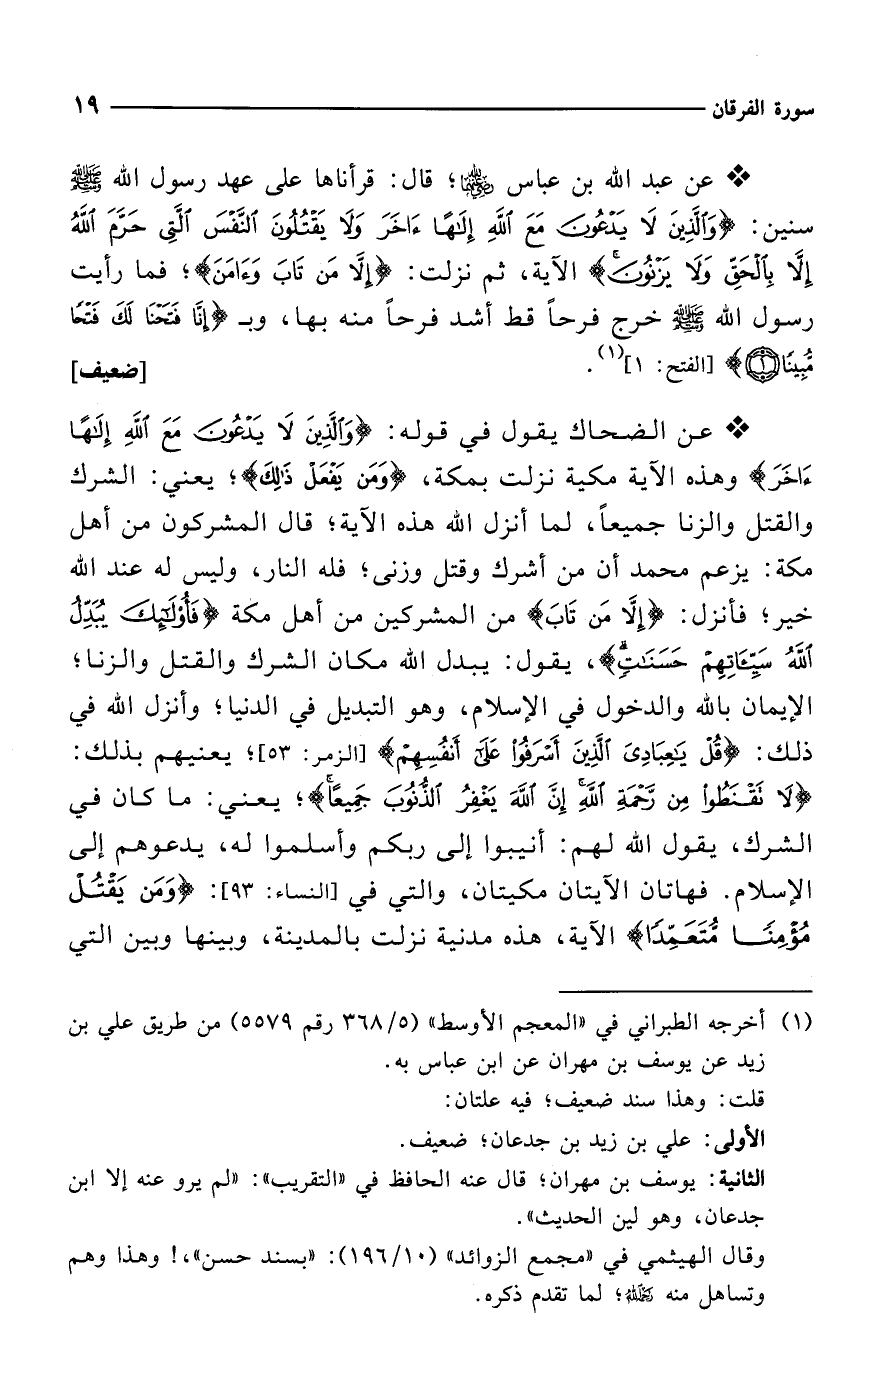 سورة الفرقان ١٩
❖ عن عبد الله بن عباس ﵄؛ قال: قرأناها على عهد رسول الله ﷺ
سنين: ﴿وَالَّذِينَ لَا يَدْعُونَ مَعَ اللَّهِ إِلَٰهًا ءَاخَرَ وَلَا يَقْتُلُونَ النَّفْسَ الَّتِي حَرَّمَ اللَّهُ
إِلَّا بِالْحَقِّ وَلَا يَزْنُونَ ۚ﴾ الآية، ثم نزلت: ﴿إِلَّا مَن تَابَ وَءَامَنَ﴾؛ فما رأيت
رسول الله ﷺ خرج فرحاً قط أشد فرحاً منه بها، وبـ ﴿إِنَّا فَتَحْنَا لَكَ فَتْحًا
مُّبِينًا ۝١﴾ [الفتح: ١](١). [ضعيف]
❖ عن الضحاك يقول في قوله: ﴿وَالَّذِينَ لَا يَدْعُونَ مَعَ اللَّهِ إِلَٰهًا
ءَاخَرَ﴾ وهذه الآية مكية نزلت بمكة، ﴿وَمَن يَفْعَلْ ذَٰلِكَ﴾؛ يعني: الشرك
والقتل والزنا جميعاً، لما أنزل الله هذه الآية؛ قال المشركون من أهل
مكة: يزعم محمد أن من أشرك وقتل وزنى؛ فله النار، وليس له عند الله
خير؛ فأنزل: ﴿إِلَّا مَن تَابَ﴾ من المشركين من أهل مكة ﴿فَأُوْلَٰٓئِكَ يُبَدِّلُ
اللَّهُ سَيِّـَٔاتِهِمْ حَسَنَٰتٍ ۗ﴾، يقول: يبدل الله مكان الشرك والقتل والزنا؛
الإيمان بالله والدخول في الإسلام، وهو التبديل في الدنيا؛ وأنزل الله في
ذلك: ﴿قُلْ يَٰعِبَادِىَ الَّذِينَ أَسْرَفُوا۟ عَلَىٰٓ أَنفُسِهِمْ﴾ [الزمر: ٥٣]؛ يعنيهم بذلك:
﴿لَا تَقْنَطُوا۟ مِن رَّحْمَةِ اللَّهِ ۚ إِنَّ اللَّهَ يَغْفِرُ الذُّنُوبَ جَمِيعًا ۚ﴾؛ يعني: ما كان في
الشرك، يقول الله لهم: أنيبوا إلى ربكم وأسلموا له، يدعوهم إلى
الإسلام. فهاتان الآيتان مكيتان، والتي في [النساء: ٩٣]: ﴿وَمَن يَقْتُلْ
مُؤْمِنًا مُّتَعَمِّدًا﴾ الآية، هذه مدنية نزلت بالمدينة، وبينها وبين التي
(١) أخرجه الطبراني في «المعجم الأوسط» (٣٦٨/٥ رقم ٥٥٧٩) من طريق علي بن
زيد عن يوسف بن مهران عن ابن عباس به.
قلت: وهذا سند ضعيف؛ فيه علتان:
الأولى: علي بن زيد بن جدعان؛ ضعيف.
الثانية: يوسف بن مهران؛ قال عنه الحافظ في «التقريب»: «لم يرو عنه إلا ابن
جدعان، وهو لين الحديث».
وقال الهيثمي في «مجمع الزوائد» (١٩٦/١٠): «بسند حسن»،! وهذا وهم
وتساهل منه ﵀؛ لما تقدم ذكره.